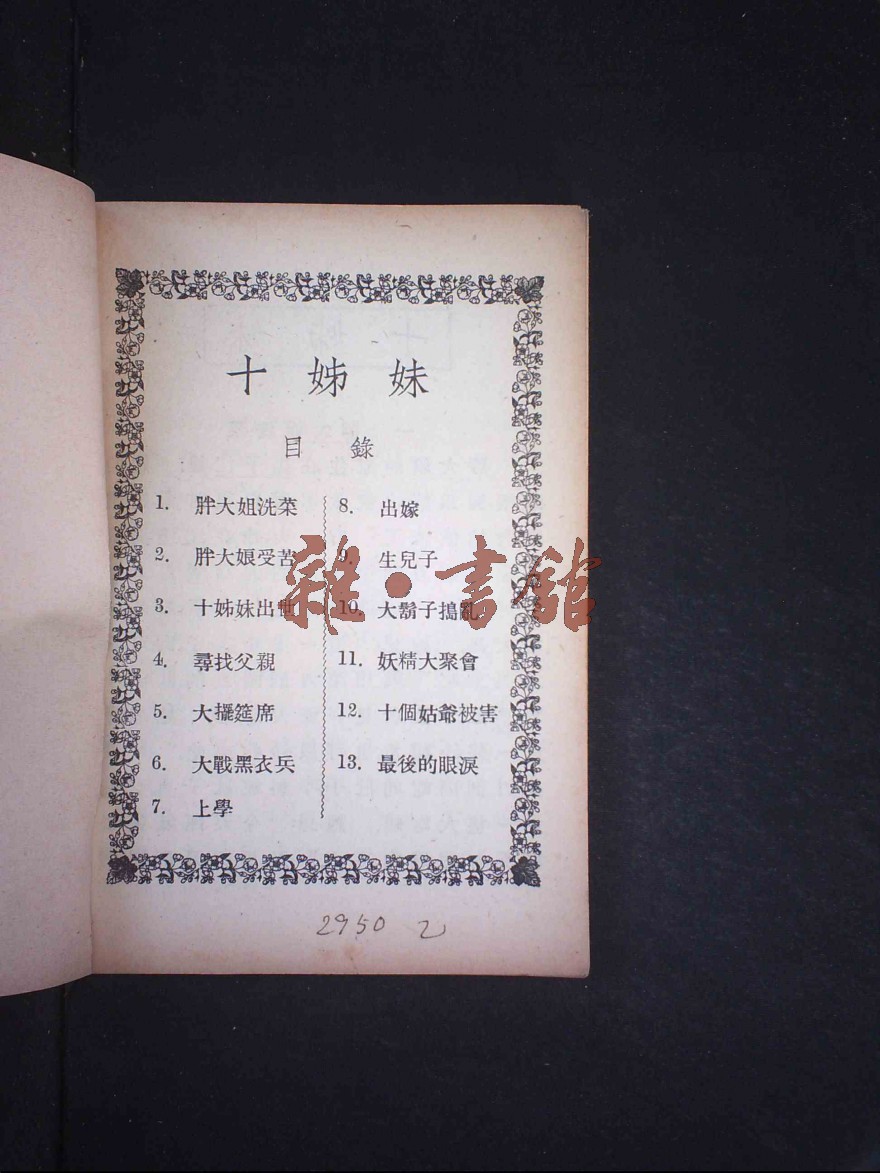 十姊妹
目錄
1. 胖大姐洗菜
2. 胖大娘受苦
3. 十姊妹出世
4. 尋找父親
5. 大擺筵席
6. 大戰黑衣兵
7. 上學
8. 出嫁
9. 生兒子
10. 大鬍子搗亂
11. 妖精大聚會
12. 十個姑爺被害
13. 最後的眼淚
雜·書館
2950 2